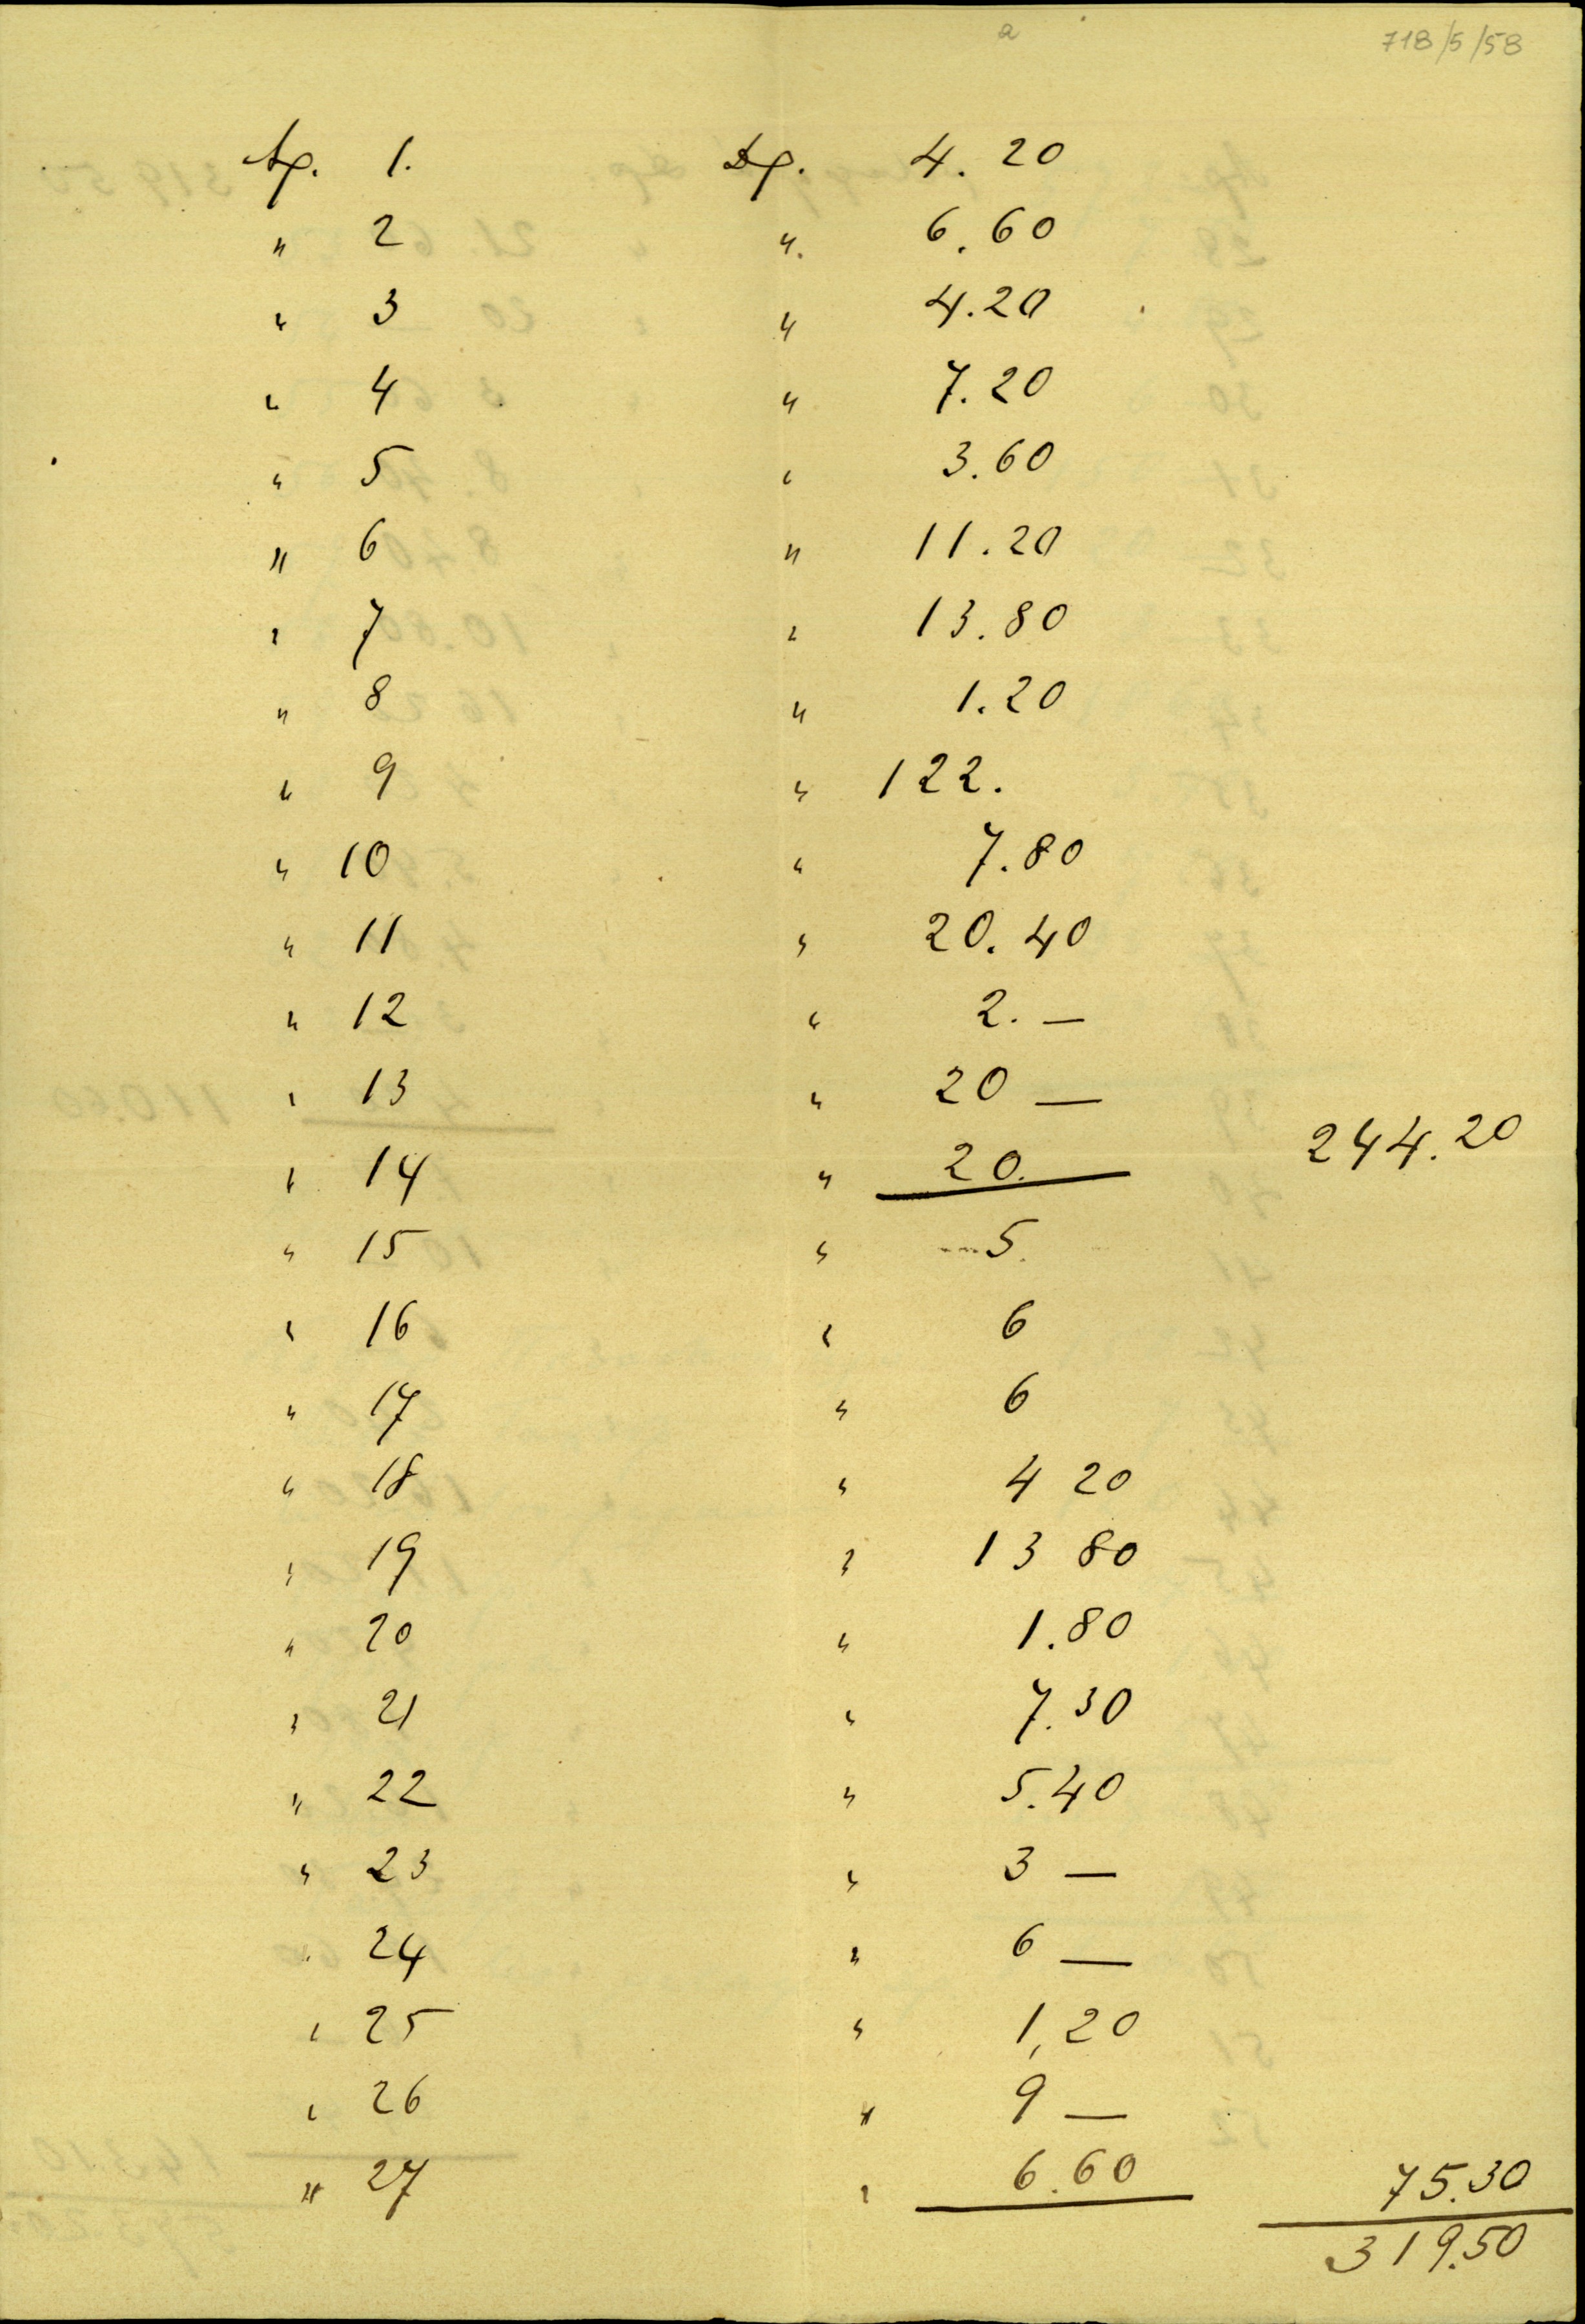 a
718/5/58
Ap. 1. Dp. 4.20
" 2 " 6.60
" 3 " 4.20
" 4 " 7.20
" 5 " 3.60
" 6 " 11.20
" 7 " 13.80
" 8 " 1.20
" 9 " 122.
" 10 " 7.80
" 11 " 20.40
" 12 " 2. —
" 13 " 20 —
" 14 " 20. 244.20
" 15 " 5.
" 16 " 6
" 17 " 6
" 18 " 4 20
" 19 " 13 80
" 20 " 1.80
" 21 " 7.30
" 22 " 5.40
" 23 " 3 —
" 24 " 6 —
" 25 " 1,20
" 26 " 9 —
" 27 " 6.60 75.30
319.50